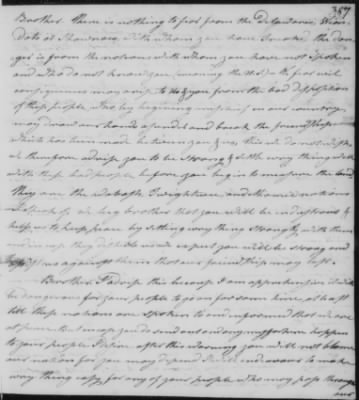 357
Brother. there is nothing to fear from the Delawares, Wian-
dots & Shawnoes, with whom you have smoked the dan-
ger is from the nations with whom you have not spoken
and who do not know you
consequences may arise to us & you from the bad disposition
of these people, who by beginning mischief in our country
may draw our hands asunder and break the friendship
which has been made between you & us this we do not wish
we therefore advise you to be strong & settle every thing
with these bad people before you begin to measure the land
they are the Piankashaws and the nations
we beg brother that you will be industrious &
help us to keep peace by settling every thing strongly with them
and in case they we expect you will be strong and
us against them that our friendship may last.
Brother I advise this because I am apprehensive it will
be dangerous for your people to go on for some time, at least
till these nations are spoken to and informed that we are
at peace. But in case you do send out and any misfortune happen
to your people I after this warning you will not blame
our nation for you may depend I will endeavour to make
every thing easy for any of your people who may pass through
our